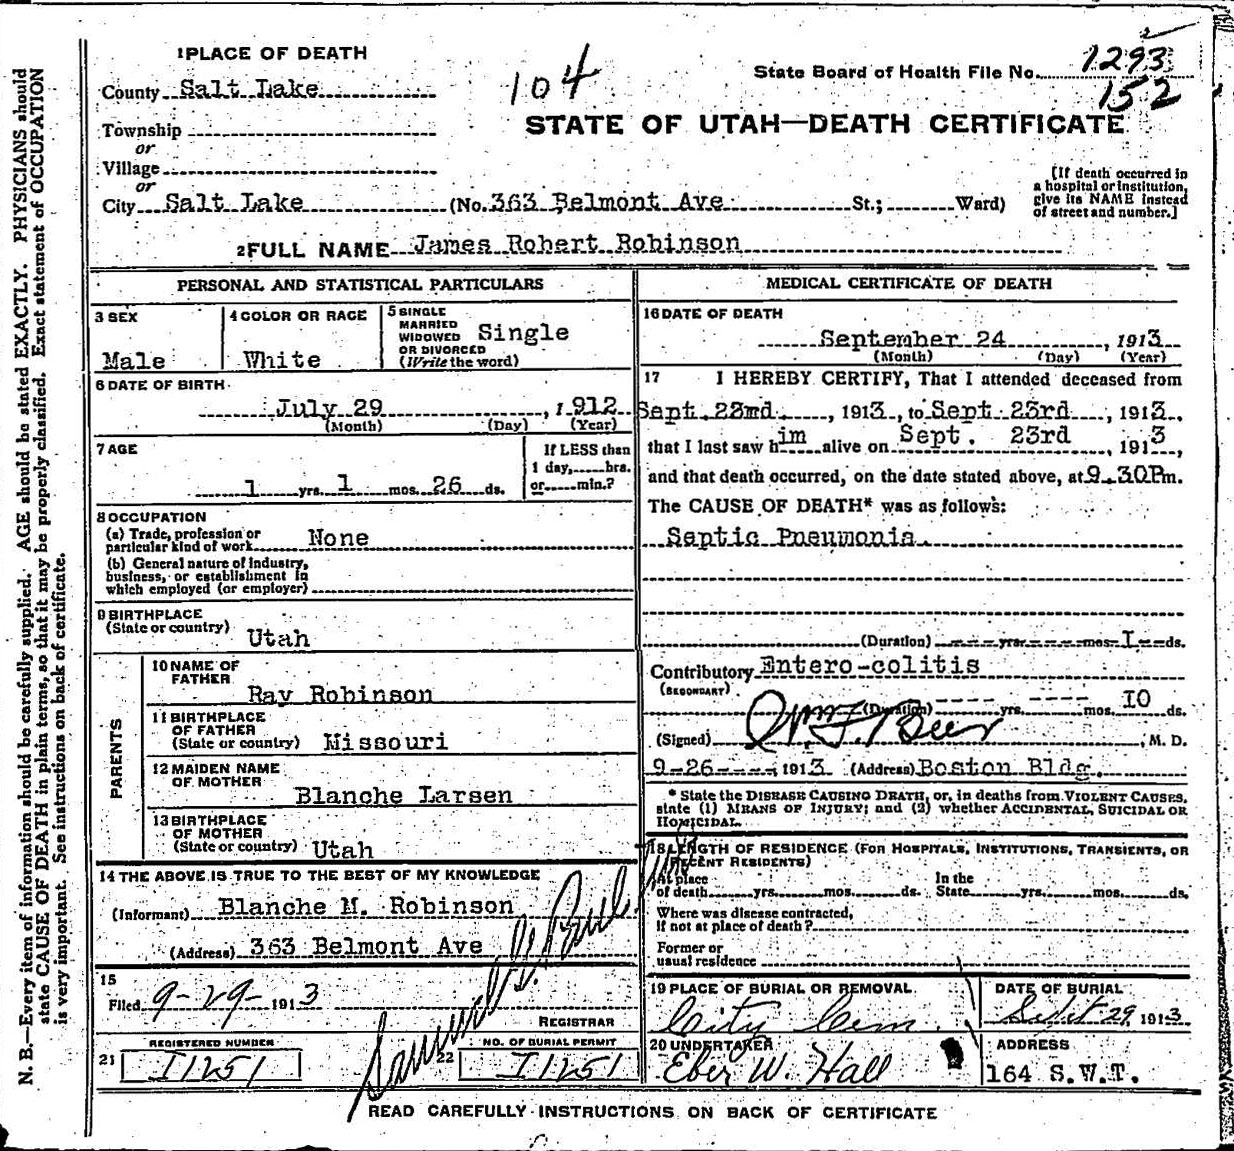 1 PLACE OF DEATH
County Salt Lake
Township
or
Village
or
City Salt Lake (No. 363 Belmont Ave St.; Ward)
104
State Board of Health File No. 1293
152
STATE OF UTAH—DEATH CERTIFICATE
[If death occurred in
a hospital or institution,
give its NAME instead
of street and number.]
2 FULL NAME James Robert Robinson
PERSONAL AND STATISTICAL PARTICULARS
3 SEX
Male
4 COLOR OR RACE
White
5 SINGLE
MARRIED
WIDOWED
OR DIVORCED
(Write the word)
Single
6 DATE OF BIRTH
July 29, 1912
(Month) (Day) (Year)
7 AGE
1 yrs. 1 mos. 26 ds.
If LESS than
1 day, hrs.
or min.?
8 OCCUPATION
(a) Trade, profession or
particular kind of work None
(b) General nature of industry,
business, or establishment in
which employed (or employer)
9 BIRTHPLACE
(State or country)
Utah
PARENTS
10 NAME OF
FATHER
Ray Robinson
11 BIRTHPLACE
OF FATHER
(State or country) Missouri
12 MAIDEN NAME
OF MOTHER
Blanche Larsen
13 BIRTHPLACE
OF MOTHER
(State or country) Utah
14 THE ABOVE IS TRUE TO THE BEST OF MY KNOWLEDGE
(Informant) Blanche M. Robinson
(Address) 363 Belmont Ave
15
Filed 9-29- 1913
Samuel G. Paul
REGISTRAR
21 REGISTERED NUMBER
I1251
22 NO. OF BURIAL PERMIT
I1251
MEDICAL CERTIFICATE OF DEATH
16 DATE OF DEATH
September 24, 1913
(Month) (Day) (Year)
17 I HEREBY CERTIFY, That I attended deceased from
Sept. 22nd, 1913, to Sept. 23rd, 1913,
that I last saw him alive on Sept. 23rd 1913,
and that death occurred, on the date stated above, at 9.30Pm.
The CAUSE OF DEATH* was as follows:
Septic Pneumonia.
(Duration) yrs. mos. I ds.
Contributory Entero-colitis
(SECONDARY)
(Duration) yrs. mos. IO ds.
(Signed) Wm. F. Beer, M. D.
9-26----, 1913 (Address) Boston Bldg.
* State the DISEASE CAUSING DEATH, or, in deaths from VIOLENT CAUSES,
state (1) MEANS OF INJURY; and (2) whether ACCIDENTAL, SUICIDAL OR
HOMICIDAL.
18 LENGTH OF RESIDENCE (FOR HOSPITALS, INSTITUTIONS, TRANSIENTS, OR
RECENT RESIDENTS)
At place
of death yrs. mos. ds.
In the
State yrs. mos. ds.
Where was disease contracted,
If not at place of death?
Former or
usual residence
19 PLACE OF BURIAL OR REMOVAL
City Cem.
DATE OF BURIAL
Sept 29, 1913
20 UNDERTAKER
Eber W. Hall
ADDRESS
164 S.W.T.
READ CAREFULLY INSTRUCTIONS ON BACK OF CERTIFICATE
N. B.—Every item of information should be carefully supplied. AGE should be stated EXACTLY. PHYSICIANS should
state CAUSE OF DEATH in plain terms, so that it may be properly classified. Exact statement of OCCUPATION
is very important. See instructions on back of certificate.